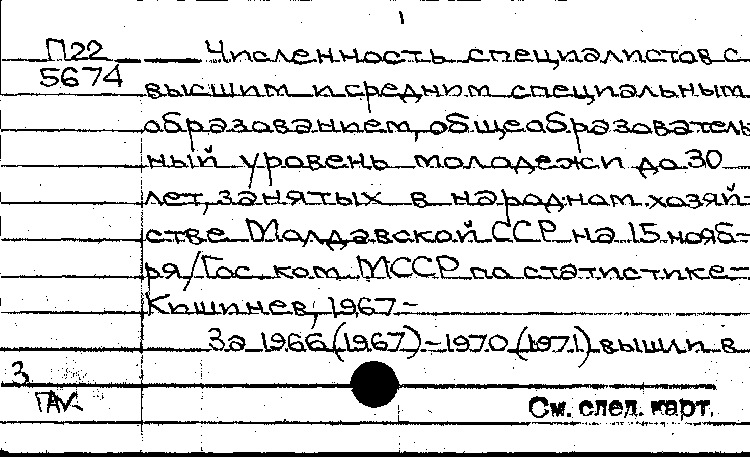 1
П22 Численность специалистов с
5674 высшим и средним специальным
образованием, общеобразователь
ный уровень молодежи до 30
лет, занятых в народном хозяй-
стве Молдавской ССР на 15 нояб-
ря/Гос. ком. МССР по статистике-
Кишинев, 1967-
За 1966(1967)-1970(1971) вышли в
3
ГАК
См. след. карт.